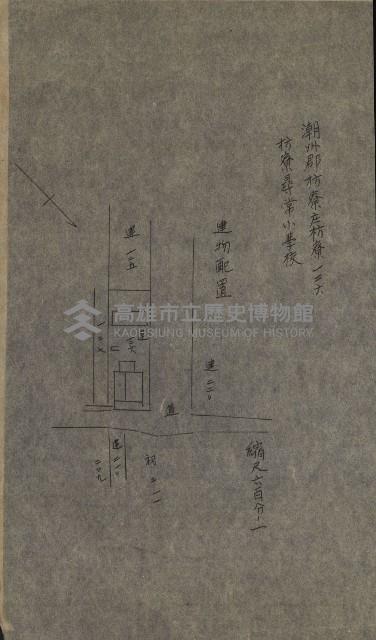 潮州郡枋寮庄枋寮一三六
枋寮尋常小學校
建物配置
縮尺六百分ノ一
建一五
建
一三六
建二二〇
道
祠二一一
建二一〇
二〇九
高雄市立歷史博物館
KAOHSIUNG MUSEUM OF HISTORY